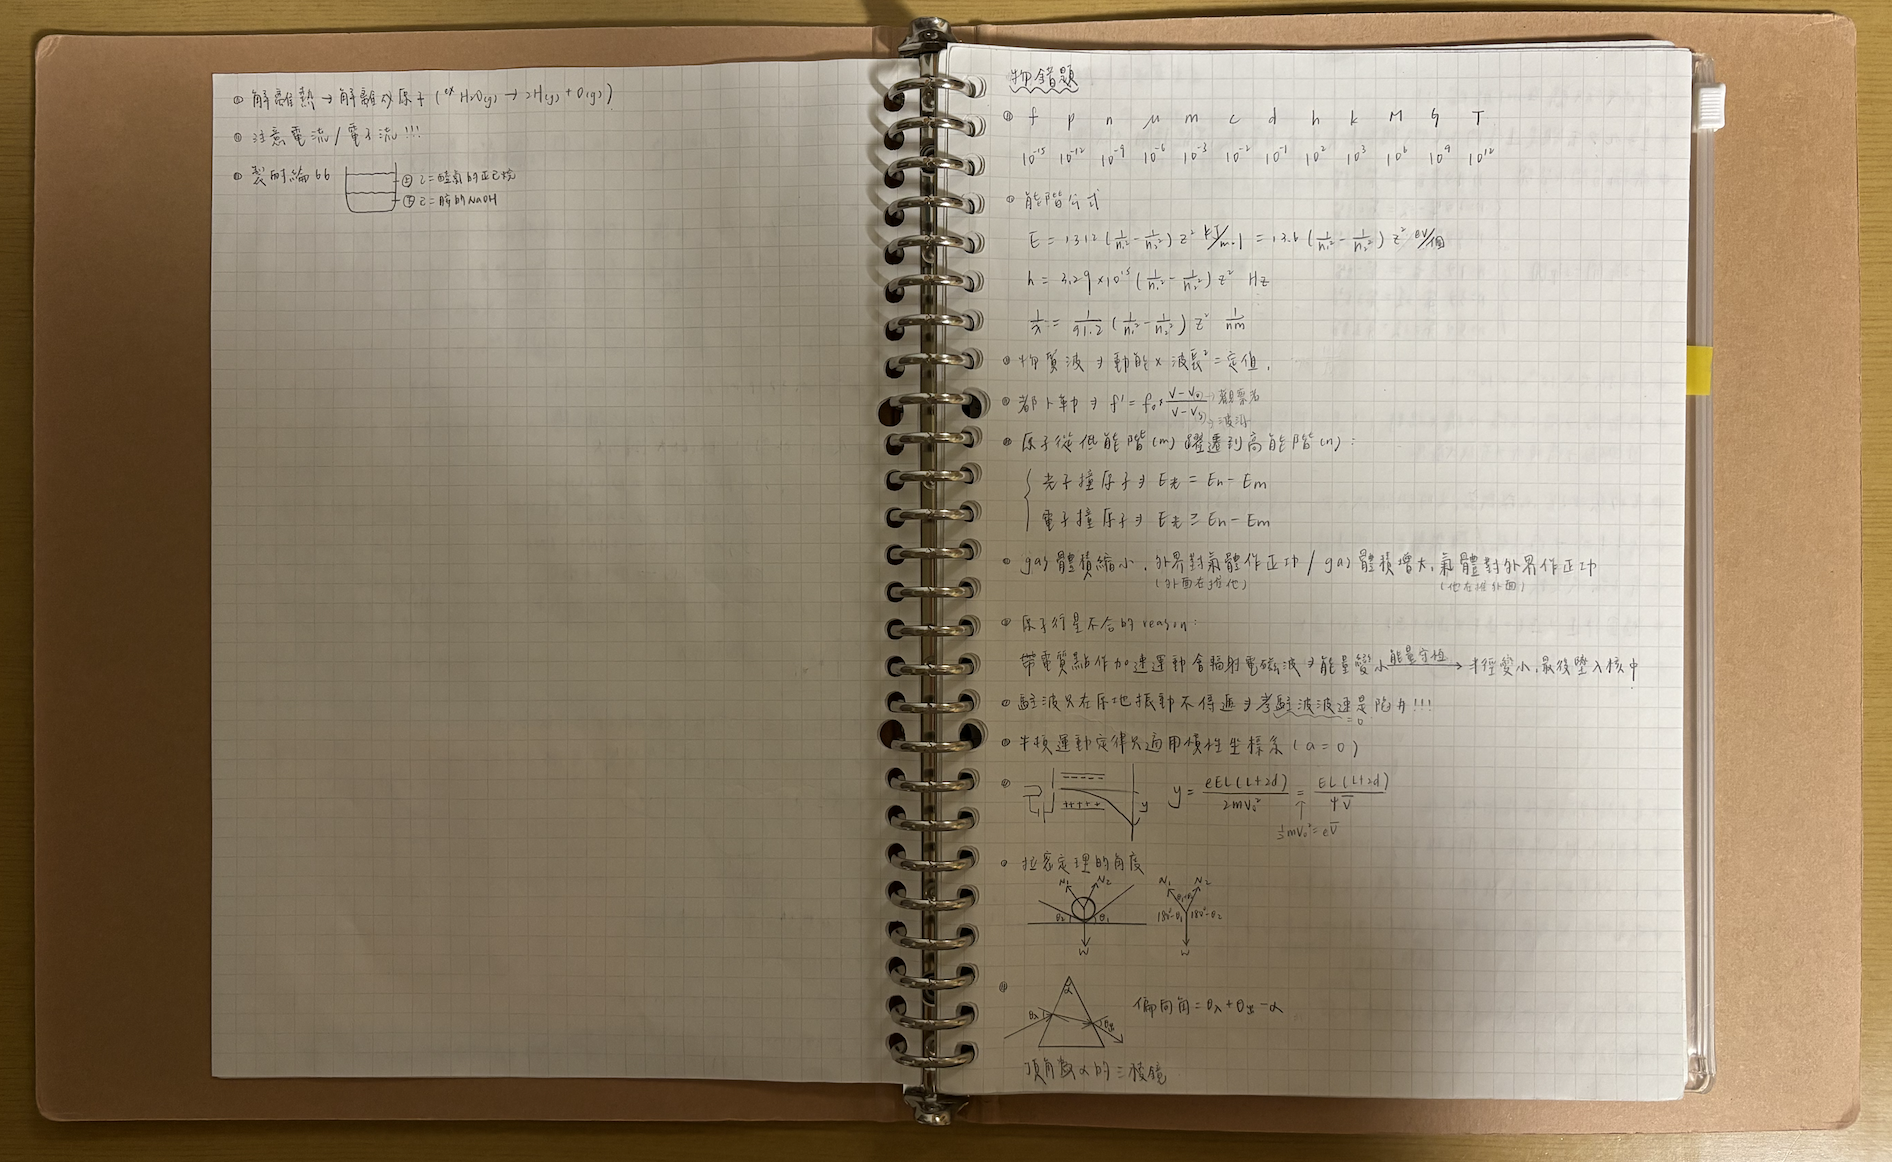 解離熱→解離成原子(ex H2O(g)→2H(g)+O(g))
注意電流/電子流!!!
製耐綸66
上 己二醯氯的正己烷
下 己二胺的NaOH
物錯題
f p n μ m c d h k M G T
10⁻¹⁵ 10⁻¹² 10⁻⁹ 10⁻⁶ 10⁻³ 10⁻² 10⁻¹ 10² 10³ 10⁶ 10⁹ 10¹²
能階公式
E = 1312 (1/n₁² - 1/n₂²) z² kJ/mol = 13.6 (1/n₁² - 1/n₂²) z² eV/個
h = 3.29×10¹⁵ (1/n₁² - 1/n₂²) z² Hz
1/λ = 1/91.2 (1/n₁² - 1/n₂²) z² 1/nm
物質波⇒動能×波長²=定值.
都卜勒⇒ f' = f₀× (V-V₀)/(V-Vs) →觀察者
→波源
原子從低能階(m)躍遷到高能階(n):
光子撞原子⇒ E光 = En - Em
電子撞原子⇒ E光 ≥ En - Em
gas體積縮小,外界對氣體作正功/gas體積增大,氣體對外界作正功
(外面在推他) (他在推外面)
原子行星不合的reason:
帶電質點作加速運動會輻射電磁波⇒能量變小 能量守恆→ 半徑變小,最後墜入核中
駐波只在原地振動不傳遞⇒考駐波波速是陷阱!!!
=0
牛頓運動定律只適用慣性坐標系(a=0)
---- ++++ y y = eEL(L+2d)/2mV₀² = EL(L+2d)/4V
½mV₀²=eV
拉密定理的角度
N₁ N₂ N₁ N₂
θ₂ θ₁ θ₁+θ₂
180°-θ₁ 180°-θ₂
W W
α
θ入 θ出 偏向角=θ入+θ出-α
頂角數α的三稜鏡